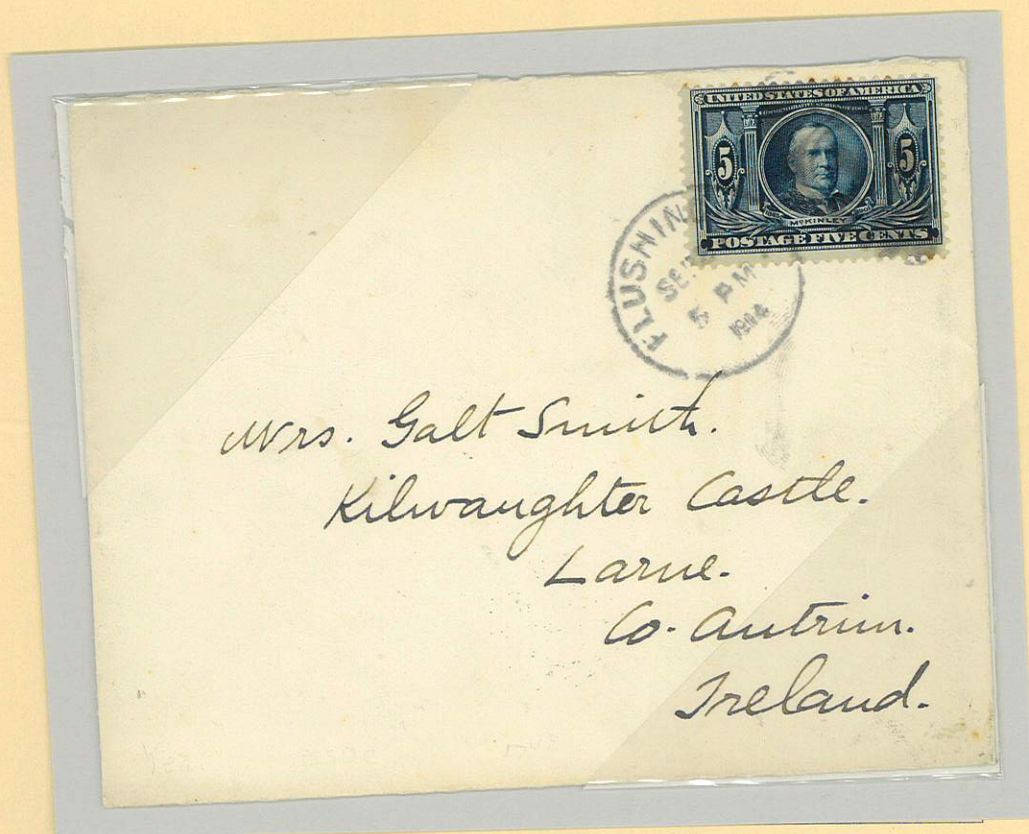 UNITED STATES OF AMERICA
5 5
McKINLEY
POSTAGE FIVE CENTS
FLUSHIN
SE
5 PM
1904
Mrs. Galt Smith.
Kilwaughter Castle.
Larne.
Co. Antrim.
Ireland.